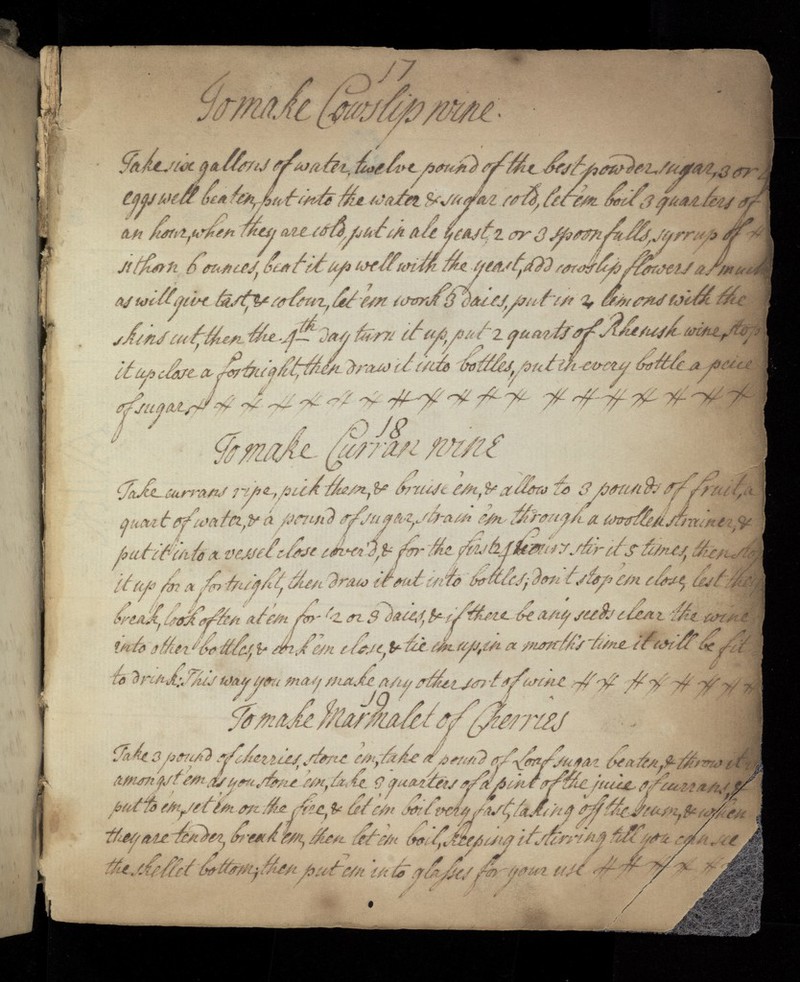 17
To make Cowslip wine.
Take six gallons of water, twelve pound of the best powder sugar, 3 or
eggs well beaten, put into the water & sugar cold, let 'em boil 3 quarters of
an hour, when they are cold, put in ale yeast, 2 or 3 spoonfulls, syrrup of
sithorn, 6 ounces, beat it up well with the yeast, add cowslip flowers as much
as will give tast, & colour, let 'em work 3 daies, put in 2 lemons with the
skins cut, then the 4th day turn it up, put 2 quarts of Rhenish wine, stop
it up close a fortnight, then draw it into bottles, put in every bottle a peice
of sugar
18
To make Curran wine
Take currans ripe, pick them, & bruise 'em, & allow to 3 pounds of fruit, a
quart of water, & a pound of sugar, strain 'em through a woollen strainer, &
put it into a vessel close cover'd, & for the first 24 hours stir it 5 times, then stop
it up for a fortnight, then draw it out into bottles; don't stop 'em close, lest they
break, look often at 'em for 2 or 3 daies, & if there be any seeds clear the wine
into other bottles, & cork 'em close, & tie 'em up, in a month's time it will be fit
to drink. This way you may make any other sort of wine
19
To make Marmalet of Cherries
Take 3 pound of cherries, stone 'em, take a pound of Loaf sugar beaten, & throw it
amongst 'em as you stone 'em, take 3 quarters of a pint of the juice of currans, &
put to 'em, set 'em on the fire, & let 'em boil very fast, taking off the scum, & when
they are tender, break 'em, then let 'em boil, keeping it stirring till you can see
the skellet bottom; then put 'em into glasses for your use